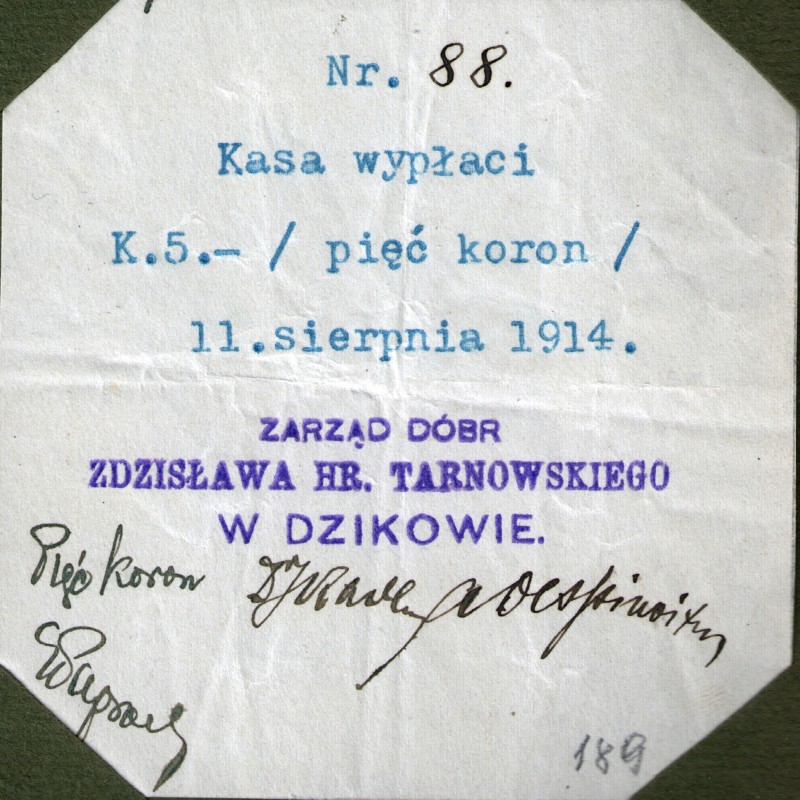 Nr. 88.
Kasa wypłaci
K.5.- / pięć koron /
11.sierpnia 1914.
ZARZĄD DÓBR
ZDZISŁAWA HR. TARNOWSKIEGO
W DZIKOWIE.
Pięć koron
189